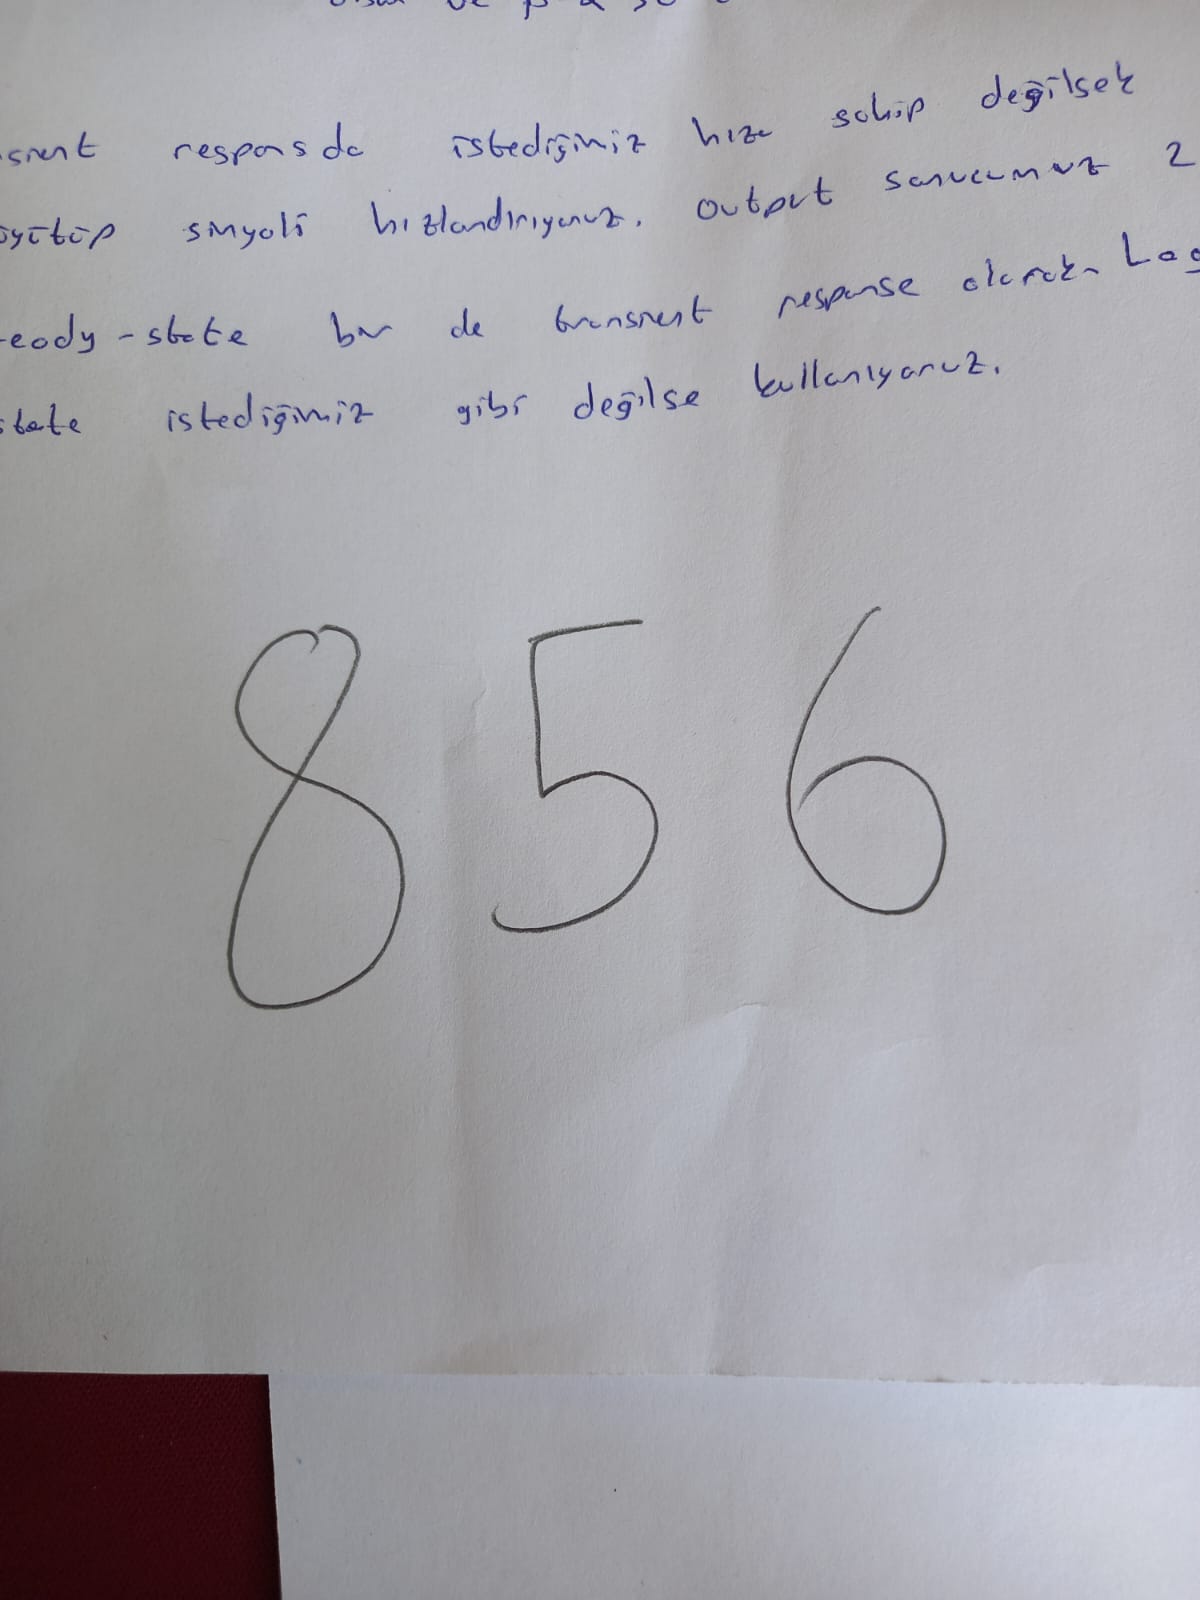 respons da istediğimiz hıza sahip değilsek
sinyali hızlandırıyoruz. Output sonucumuz 2
-state bir de transient response olarak. Lag
istediğimiz gibi değilse kullanıyoruz.
8 5 6